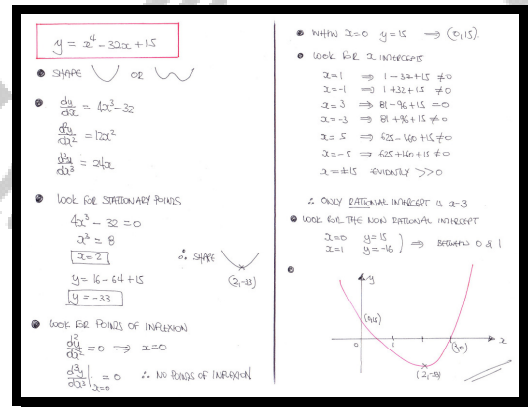 y = x⁴ - 32x + 15
• SHAPE OR
• dy/dx = 4x³ - 32
d²y/dx² = 12x²
d³y/dx³ = 24x
• LOOK FOR STATIONARY POINTS
4x³ - 32 = 0
x³ = 8
x = 2
∴ SHAPE
(2,-33)
y = 16 - 64 + 15
y = -33
• LOOK FOR POINTS OF INFLEXION
d²y/dx² = 0 → x=0
d³y/dx³|x=0 = 0 ∴ NO POINTS OF INFLEXION
• WHEN x=0 y=15 → (0,15).
• LOOK FOR x INTERCEPTS
x=1 ⇒ 1-32+15 ≠0
x=-1 ⇒ 1+32+15 ≠0
x=3 ⇒ 81-96+15 =0
x=-3 ⇒ 81+96+15 ≠0
x=5 ⇒ 625-160+15 ≠0
x=-5 ⇒ 625+160+15 ≠0
x=±15 EVIDENTLY >>0
∴ ONLY RATIONAL INTERCEPT IS x-3
• LOOK FOR THE NON RATIONAL INTERCEPT
x=0 y=15
x=1 y=-16 } ⇒ BETWEEN 0 & 1
y
(0,15)
0 1 (3,0) x
(2,-33)